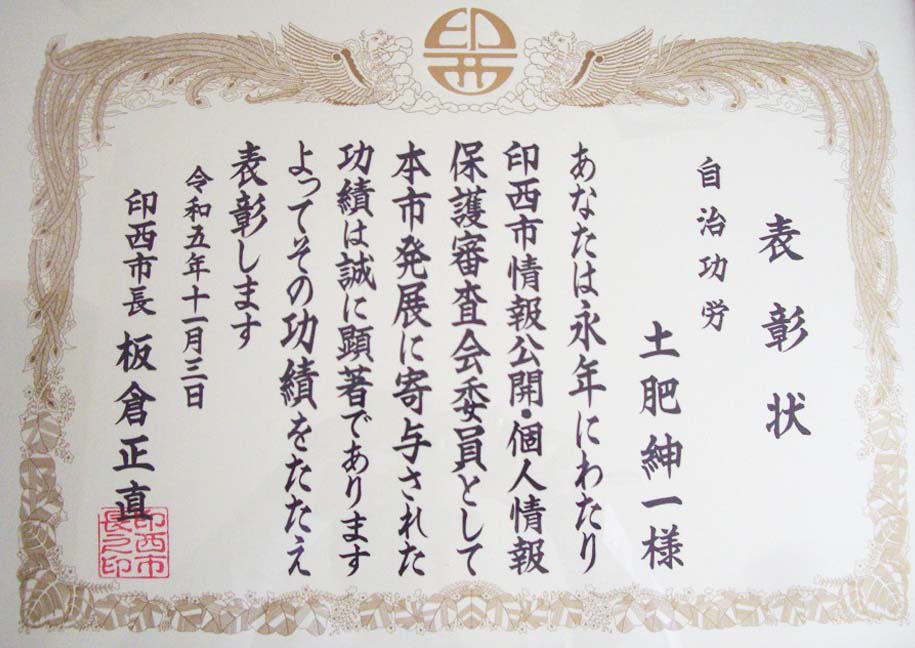 印西
表彰状
自治功労
土肥紳一様
あなたは永年にわたり
印西市情報公開・個人情報
保護審査会委員として
本市発展に寄与された
功績は誠に顕著であります
よってその功績をたたえ
表彰します
令和五年十一月三日
印西市長 板倉正直
印西市
長之印